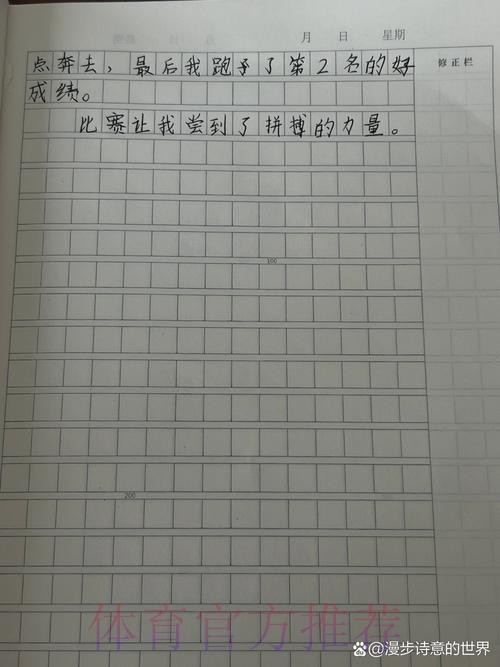 月 日 星期
点奔去，最后我跑予了第2名的好
修正栏
成绩。
比赛让我尝到了拼搏的力量。
100
200
体育官方推荐
@漫步诗意的世界